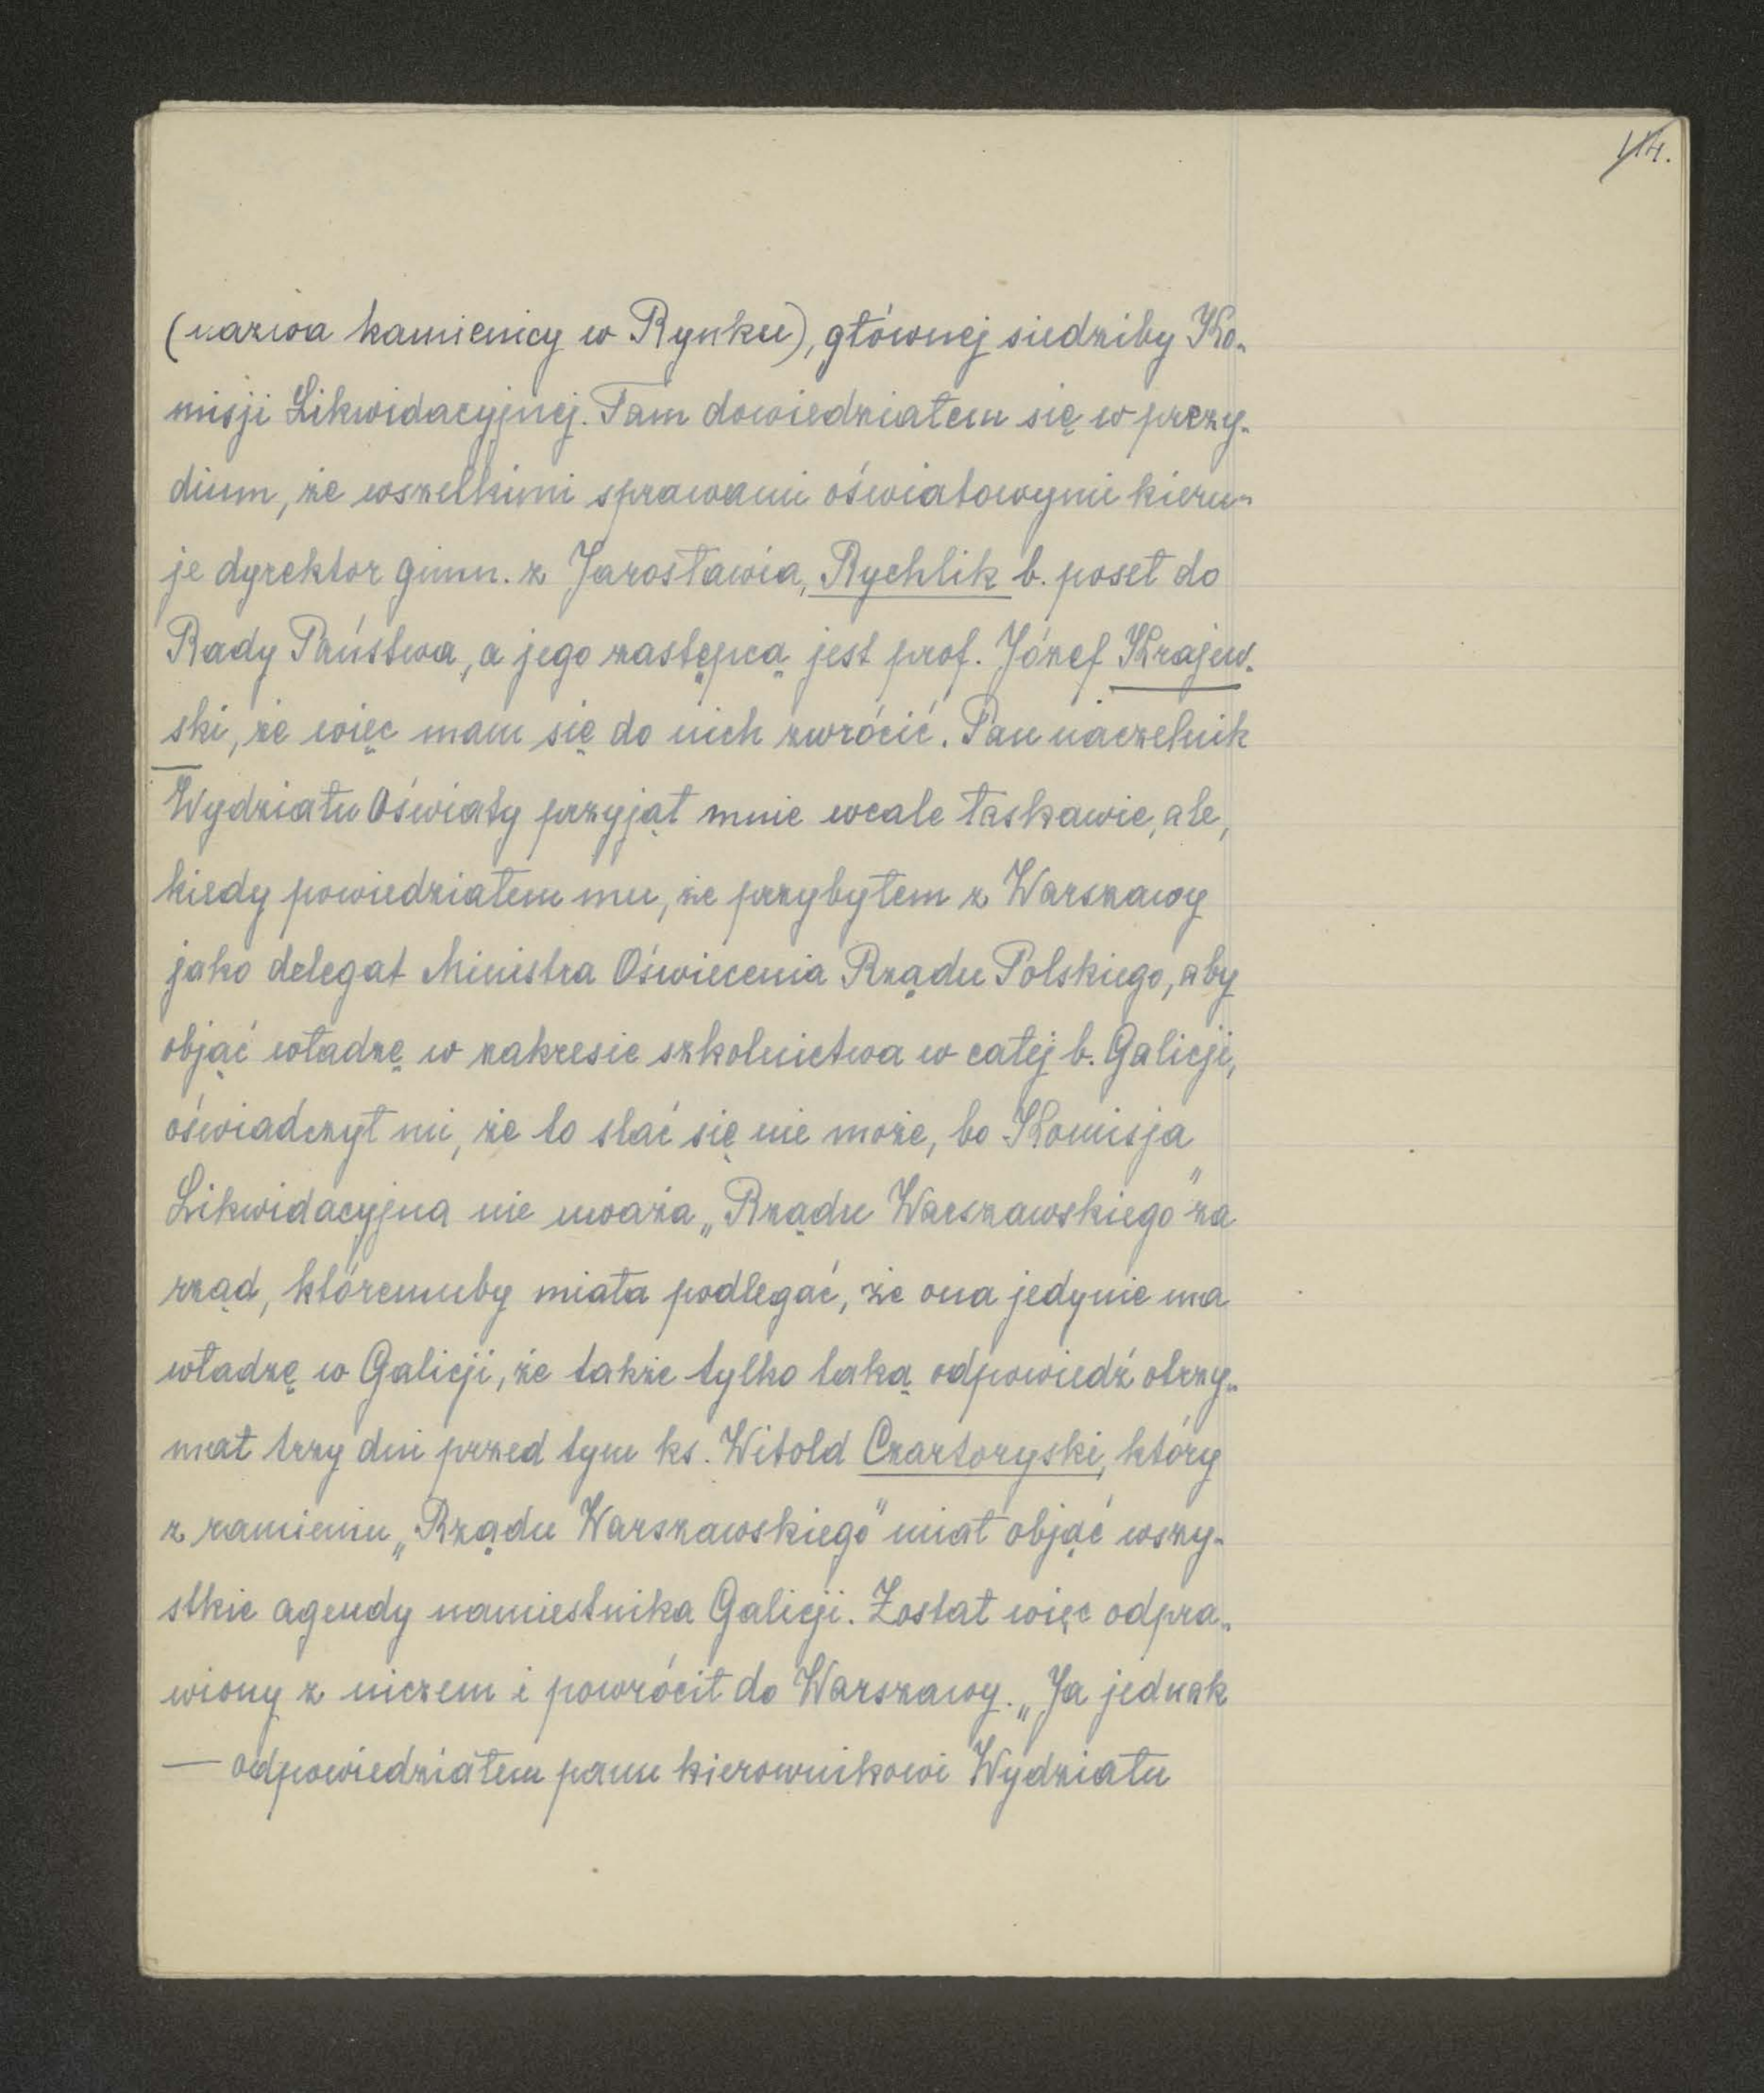 114.
(nazwa kamienicy w Rynku), głównej siedziby Ko-
misji Likwidacyjnej. Tam dowiedziałem się w prezy-
dium, że wszelkimi sprawami oświatowymi kieru-
je dyrektor gimn. z Jarosławia, Rychlik b. poseł do
Rady Państwa, a jego zastępcą jest prof. Józef Krajew-
ski, że więc mam się do nich zwrócić. Pan naczelnik
Wydziału Oświaty przyjął mnie wcale łaskawie, ale,
kiedy powiedziałem mu, że przybyłem z Warszawy
jako delegat Ministra Oświecenia Rządu Polskiego, aby
objąć władzę w zakresie szkolnictwa w całej b. Galicji,
oświadczył mi, że to stać się nie może, bo Komisja
Likwidacyjna nie uważa „Rządu Warszawskiego" za
rząd, któremuby miała podlegać, że ona jedynie ma
władzę w Galicji, że także tylko taką odpowiedź otrzy-
mał trzy dni przed tym ks. Witold Czartoryski, który
z ramieniu „Rządu Warszawskiego" miał objąć wszy-
stkie agendy namiestnika Galicji. Został więc odpra-
wiony z niczem i powrócił do Warszawy. „Ja jednak
— odpowiedziałem panu kierownikowi Wydziału